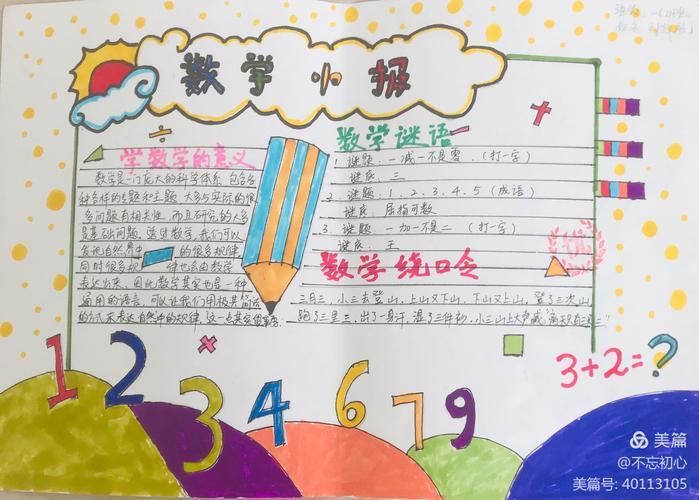 数学小报
学数学的意义
数学是一门庞大的科学体系,包含各
种各样的专题和主题,大多与实际的很
多问题有相关性,而且研究的大多
是基础问题,透过数学,我们可以
发现自然界中的很多规律,
同时很多规律也会由数学
表达出来,因此数学其实也是一种
通用的语言,可以让我们用极其简洁
的方式来表达自然中的规律,这一点其实很重要。
数学谜语
1. 谜题:一减一不是零。(打一字)
谜底:三
2. 谜题:1、2、3、4、5(成语)
谜底:屈指可数
3. 谜题:一加一不是二(打一字)
谜底:王
数学绕口令
三月三,小三去登山,上山又下山,下山又上山,登了三次山,
跑了三里三,出了一身汗,湿了三件衫,小三山上大声喊"离天只有三尺三"
优
3+2=?
1 2 3 4 6 7 9
美篇
@不忘初心
美篇号: 40113105